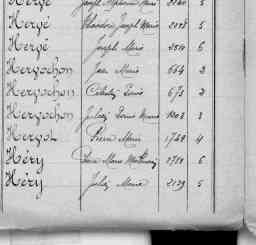 Hergé Joseph Marie 5
Hergé Théodore Joseph Marie 2028 5
Hergé Joseph Marie 2510 6
Hergochon Jean Marie 664 2
Hergochon Célestin Louis 673 2
Hergochon Julien Louis Marie 1308 3
Hergot Pierre Marie 1749 4
Héry Pierre Marie Mathurin 2719 6
Héry Julien Marie 2129 5